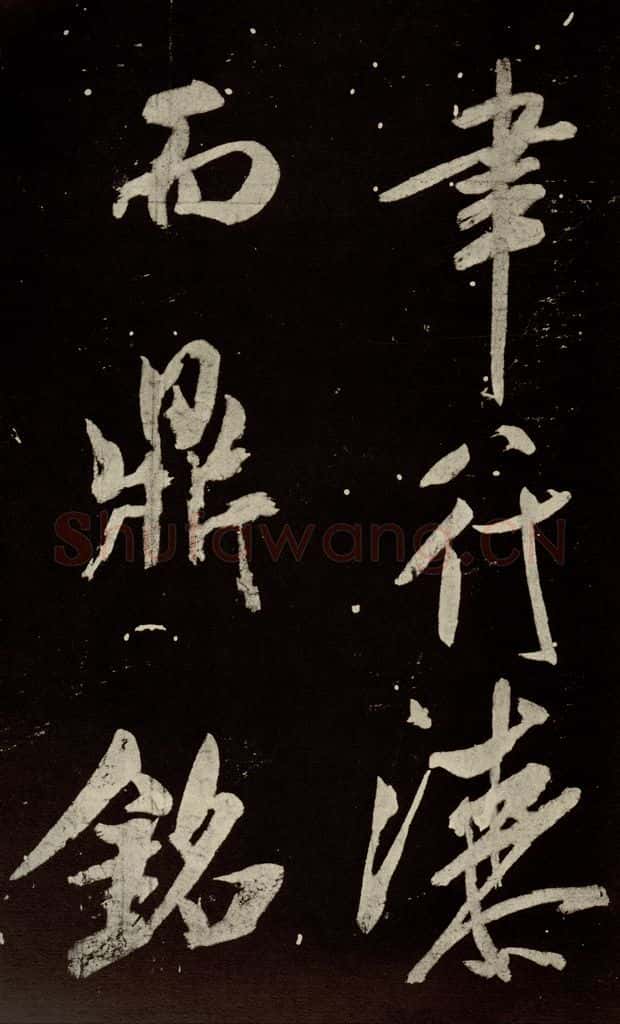 聿行漆
而鼎銘
Shufawang.CN